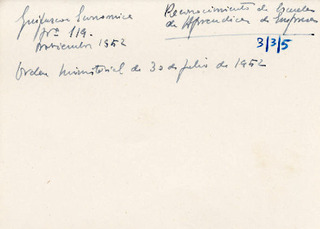 Guipuzcoa Economica
Nº 119.
Noviembre 1952
Reconocimiento de Escuelas
de Aprendices de Empresas
3/3/5
Orden ministerial de 30 de julio de 1952